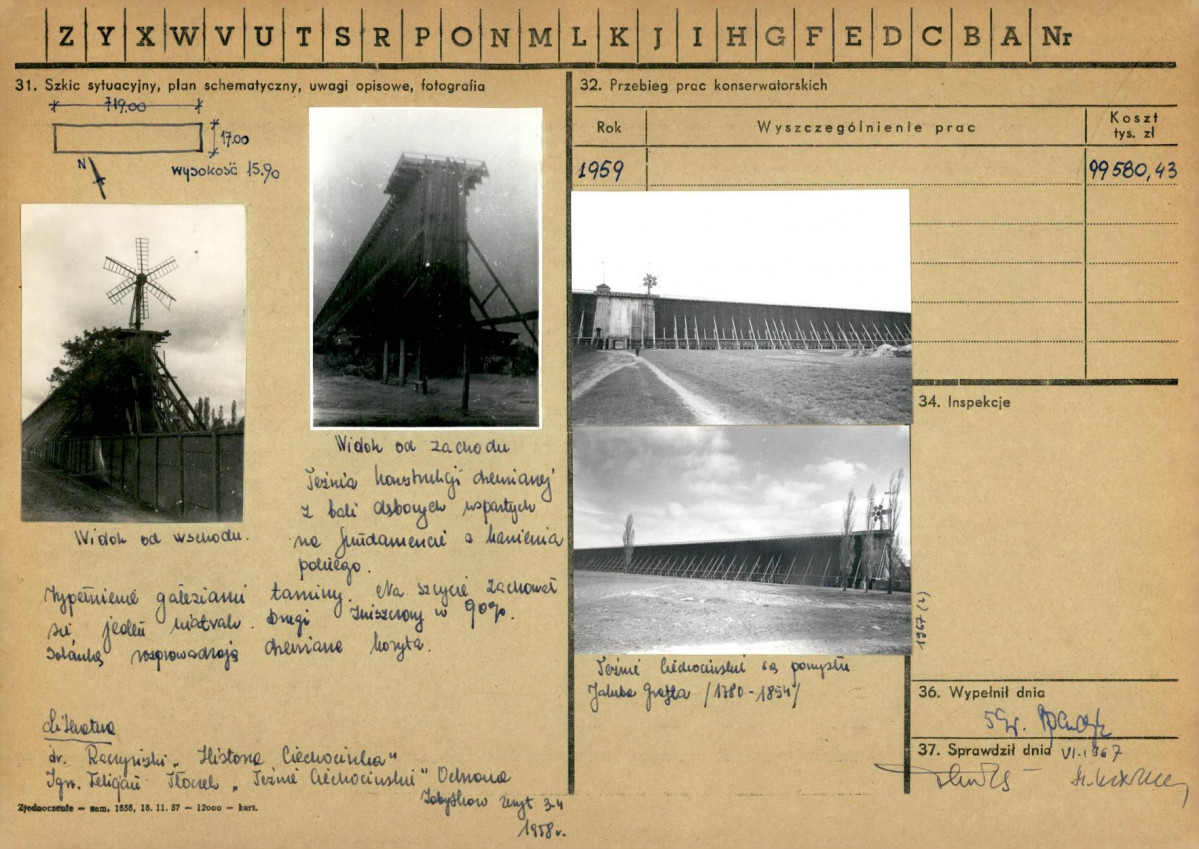 Z Y X W V U T S R P O N M L K J I H G F E D C B A Nr
31. Szkic sytuacyjny, plan schematyczny, uwagi opisowe, fotografia
719,00
17.00
wysokość 15.90
N
Widok od zachodu
Widok od wschodu.
Tężnia konstrukcji drewnianej
z bali dębowych wspartych
na fundamencie z kamienia
polnego.
Wypełnienie gałęziami tarniny. Na szczycie zachował
się jeden wiatrak. Drugi zniszczony w 90%.
Solankę rozprowadzają drewniane koryta.
Literatura
dr. Raczyński „Historia Ciechocinka"
Ign. Feligan Tłoczek „Tężnie Ciechocińskie" Ochrona
Zabytków zeszyt 3-4
1958 r.
Zjednoczenie — zam. 1656, 18. 11. 57 — 12000 — kart.
32. Przebieg prac konserwatorskich
Rok
Wyszczególnienie prac
Koszt
tys. zł
1959
99 580,43
1967 (L)
Tężnie Ciechocińskie są pomysłu
Jakuba Graffa /1780-1854/
34. Inspekcje
36. Wypełnił dnia
37. Sprawdził dnia VI.1967